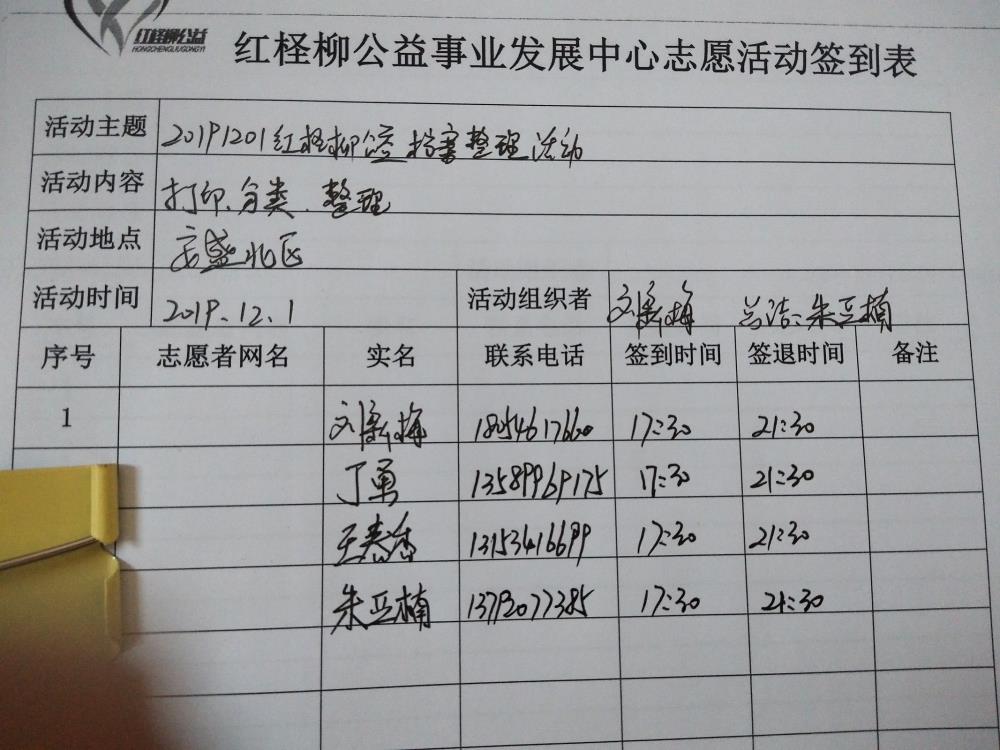 红柽柳公益
HONGCHENGLIUGONGYI
红柽柳公益事业发展中心志愿活动签到表
活动主题 20191201红柽柳公益档案整理活动
活动内容 打印、分类、整理
活动地点 安盛北区
活动时间 2019.12.1 活动组织者 刘新梅 总结:朱亚楠
序号 志愿者网名 实名 联系电话 签到时间 签退时间 备注
1 刘新梅 18054617660 17:30 21:30
丁勇 13589969175 17:30 21:30
王春香 13153416699 17:30 21:30
朱亚楠 13792077385 17:30 21:30